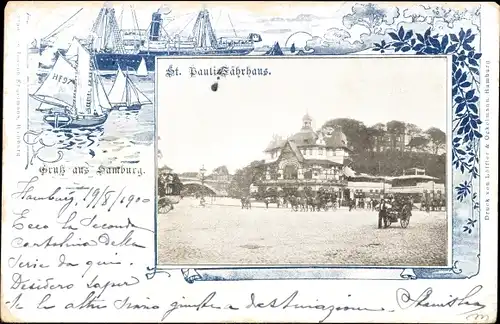 St. Pauli Fährhaus.
HF 97
Gruß aus Hamburg.
Hamburg 19/8/1900
Ecco la seconda
cartolina della
serie da qui.
Desidero saper
se le altre siano giunte a destinazione. Stanislao
Druck von Löffler & Ockelmann, Hamburg